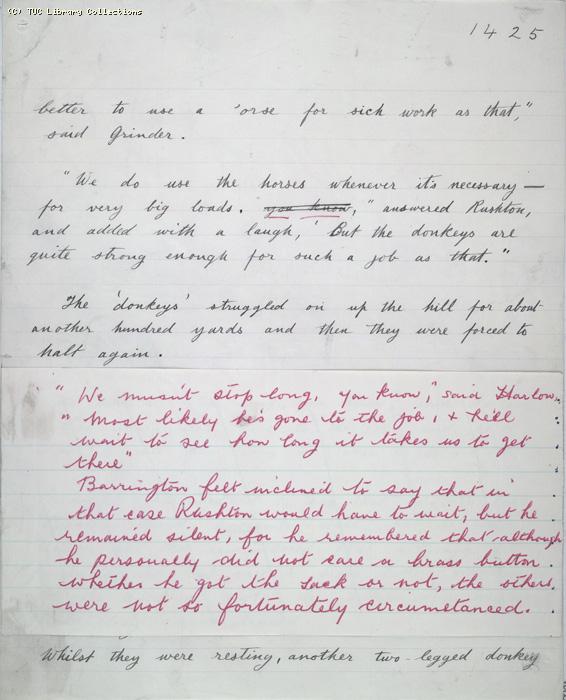 (C) TUC Library Collections
1425
better to use a 'orse for sich work as that,"
said Grinder.
"We do use the horses whenever it's necessary—
for very big loads. you know," answered Rushton,
and added with a laugh, 'But the donkeys are
quite strong enough for such a job as that."
The 'donkeys' struggled on up the hill for about
another hundred yards and then they were forced to
halt again.
"We mustn't stop long, you know," said Harlow.
"Most likely he's gone to the job, & he'll
wait to see how long it takes us to get
there"
Barrington felt inclined to say that in
that case Rushton would have to wait, but he
remained silent, for he remembered that although
he personally did not care a brass button
whether he got the sack or not, the others
were not so fortunately circumstanced.
Whilst they were resting, another two-legged donkey